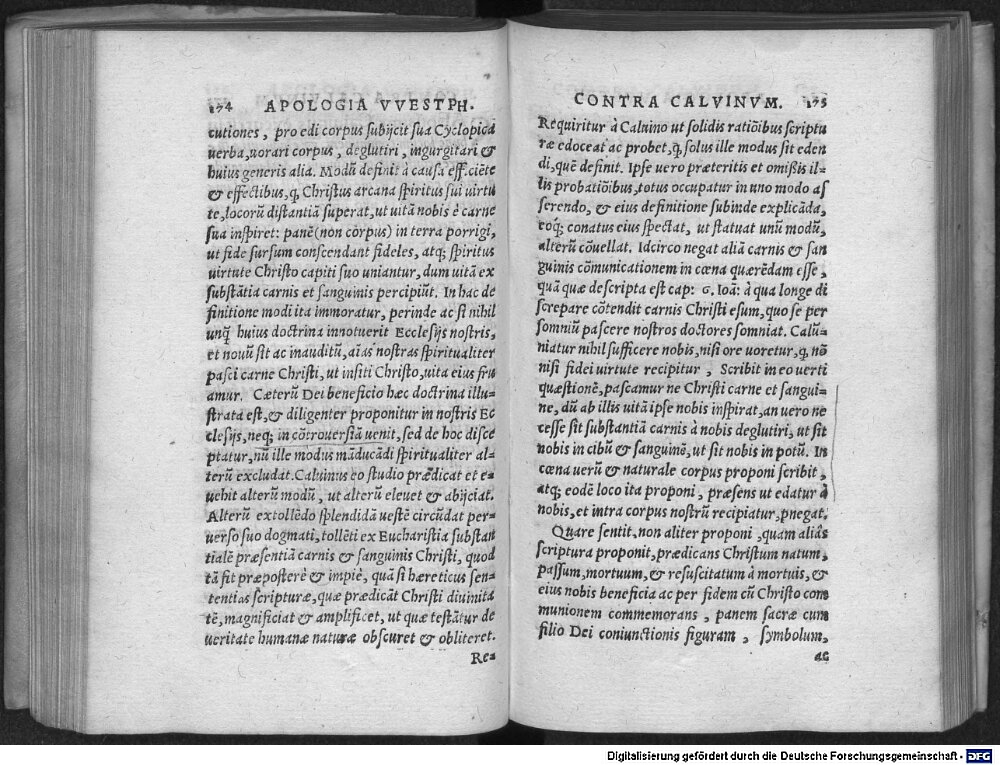 174 APOLOGIA VVESTPH.
cutiones, pro edi corpus subijcit sua Cyclopica
uerba, uorari corpus, deglutiri, ingurgitari &
huius generis alia. Modũ definit à causa efficiẽte
& effectibus, q, Christus arcana spiritus sui uirtu
te, locorũ distantiã superat, ut uitã nobis è carne
sua inspiret: panẽ (non corpus) in terra porrigi,
ut fide sursum conscendant fideles, atq; spiritus
uirtute Christo capiti suo uniantur, dum uitã ex
substãtia carnis et sanguinis percipiũt. In hac de
finitione modi ita immoratur, perinde ac si nihil
unq̃ huius doctrina innotuerit Ecclesijs nostris,
et nouũ sit ac inauditũ, aĩas nostras spiritualiter
pasci carne Christi, ut insiti Christo, uita eius fru
amur. Cæterũ Dei beneficio hæc doctrina illu=
strata est, & diligenter proponitur in nostris Ec
clesijs, neq; in cõtrouersiã uenit, sed de hoc disce
ptatur, nũ ille modus mãducãdi spiritualiter al=
terũ excludat. Caluinus eo studio prædicat et e=
uehit alterũ modũ, ut alterũ eleuet & abijciat.
Alterũ extollẽdo splendida uestẽ circũdat per=
uerso suo dogmati, tollẽti ex Eucharistia substan
tialẽ præsentiã carnis & sanguinis Christi, quod
tã fit præposterè & impiè, quã si hæreticus sen=
tentias scripturæ, quæ prædicãt Christi diuinita
tẽ, magnificiat & amplificet, ut quæ testãtur de
ueritate humanæ naturæ obscuret & obliteret.
Re=
CONTRA CALVINVM. 175
Requiritur à Caluino ut solidis ratiõibus scriptu
ræ edoceat ac probet, q, solus ille modus sit eden
di, quẽ definit. Ipse uero præteritis et omißis il=
lis probatiõibus, totus occupatur in uno modo as
serendo, & eius definitione subinde explicãda,
eoq; conatus eius spectat, ut statuat unũ modũ,
alterũ cõuellat. Idcirco negat aliã carnis & san
guinis cõmunicationem in cœna quærẽdam esse,
quã quæ descripta est cap: 6. Ioã: à qua longe di
screpare cõtendit carnis Christi esum, quo se per
somniũ pascere nostros doctores somniat. Calũ=
niatur nihil sufficere nobis, nisi ore uoretur, q, nõ
nisi fidei uirtute recipitur, Scribit in eo uerti
quæstionẽ, pascamur ne Christi carne et sangui=
ne, dũ ab illis uitã ipse nobis inspirat, an uero ne
cesse sit substãtiã carnis à nobis deglutiri, ut sit
nobis in cibũ & sanguinẽ, ut sit nobis in potũ. In
cœna uerũ & naturale corpus proponi scribit,
atq; eodẽ loco ita proponi, præsens ut edatur à
nobis, et intra corpus nostrũ recipiatur, pnegat.
Quare sentit, non aliter proponi, quam aliàs
scriptura proponit, prædicans Christum natum,
passum, mortuum, & resuscitatum à mortuis, &
eius nobis beneficia ac per fidem cũ Christo com
munionem commemorans, panem sacræ cum
filio Dei coniunctionis figuram, symbolum,
ac
Digitalisierung gefördert durch die Deutsche Forschungsgemeinschaft - DFG